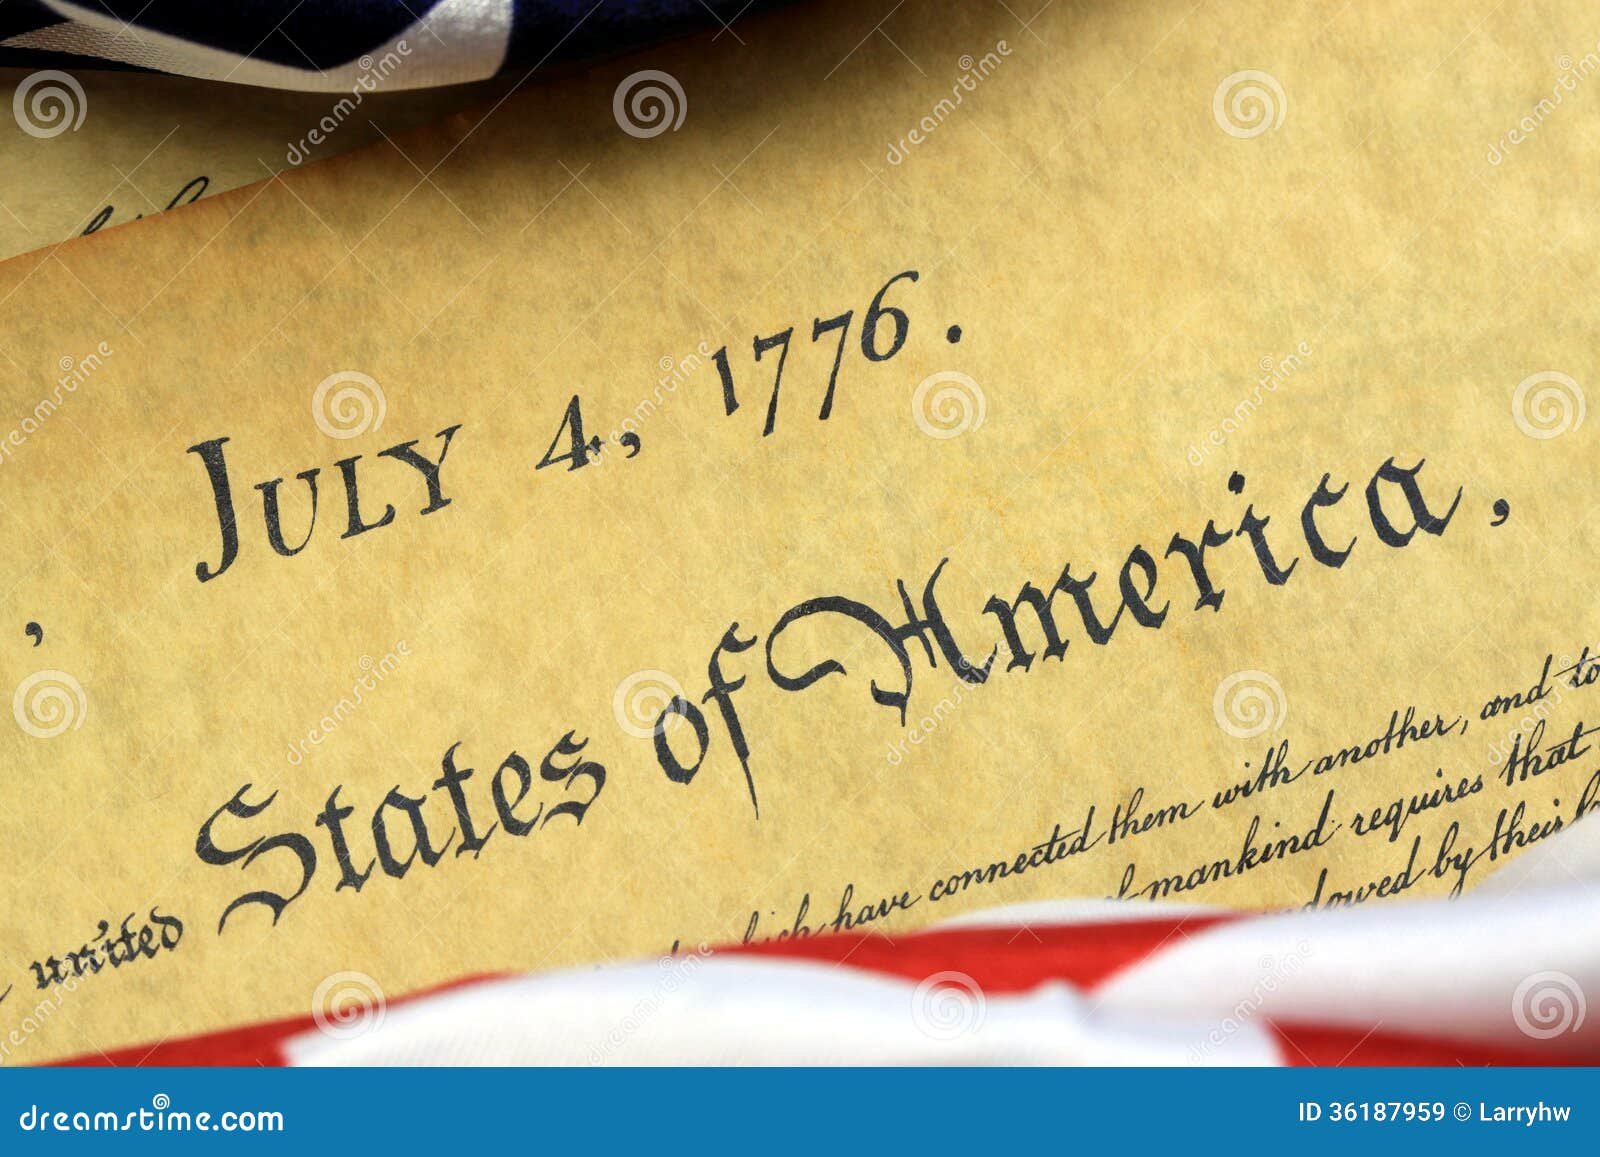 , JULY 4, 1776.
united States of America,
which have connected them with another, and to
of mankind requires that
dowed by their
dreamstime.com
ID 36187959 © Larryhw